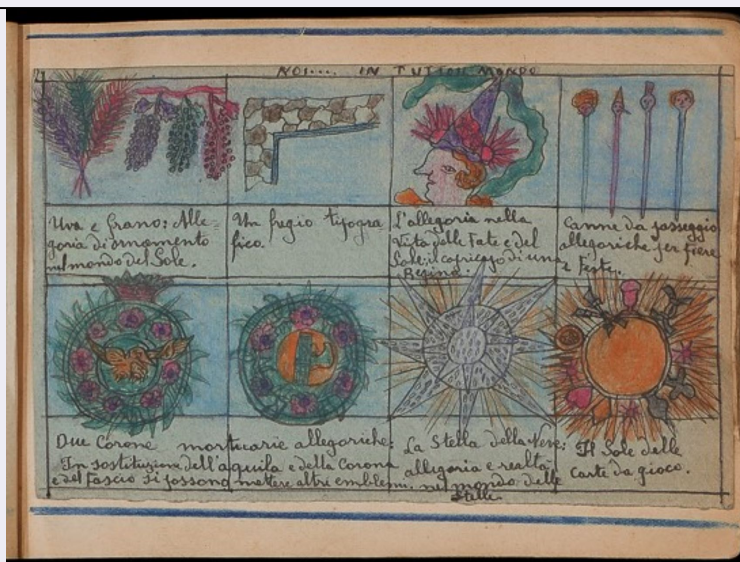 NOI.... IN TUTTO IL MONDO
Uva e grano: Alle-
goria di ornamento
nel mondo del Sole.
Un fregio tipogra-
fico.
L'allegoria nella
Vita delle Fate e del
Sole: il copricapo di una
Regina.
Canne da passeggio
allegoriche per fiere
e Feste.
Due Corone mortuarie allegoriche:
In sostituzione dell'aquila e della Corona
e del Fascio si possono mettere altri emblemi.
La Stella della Neve:
allegoria e realtà
nel mondo delle
Stelle.
Il Sole delle
carte da gioco.